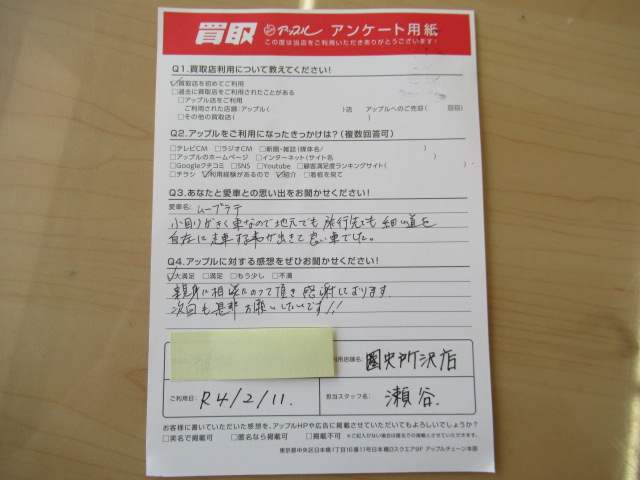 買取 アップル アンケート用紙
この度は当店をご利用いただきありがとうございます!
Q1.買取店利用について教えてください!
✓買取店を初めてご利用
□過去に買取店をご利用されたことがある
□アップル店をご利用
ご利用された店舗:アップル( )店 アップルへのご売却( 回目)
□その他の買取店( )
Q2.アップルをご利用になったきっかけは?(複数回答可)
□テレビCM □ラジオCM □新聞・雑誌(媒体名/ )
□アップルのホームページ □インターネット(サイト名 )
□Googleクチコミ □SNS □Youtube □顧客満足度ランキングサイト( )
□チラシ ✓利用経験があるので ✓紹介 □看板を見て
Q3.あなたと愛車との思い出をお聞かせください!
愛車名: ムーブラテ
小回りがきく車なので地元でも旅行先でも細い道を
自在に走車する事が出来て良い車でした。
Q4.アップルに対する感想をぜひお聞かせください!
✓大満足 □満足 □もう少し □不満
親身に相談にのって頂き感謝しております
次回も是非お願いしたいです!!
利用店舗名: 圏央所沢店
ご利用日: R4/2/11. 担当スタッフ名: 瀬谷.
お客様に書いていただいた感想を、アップルHPや広告に掲載させていただいてもよろしいでしょうか?
□実名で掲載可 □匿名なら掲載可 □掲載不可 ※ご記入がない場合は匿名での掲載とさせていただきます。
東京都中央区日本橋1丁目16番11号日本橋Dスクエア9F アップルチェーン本部